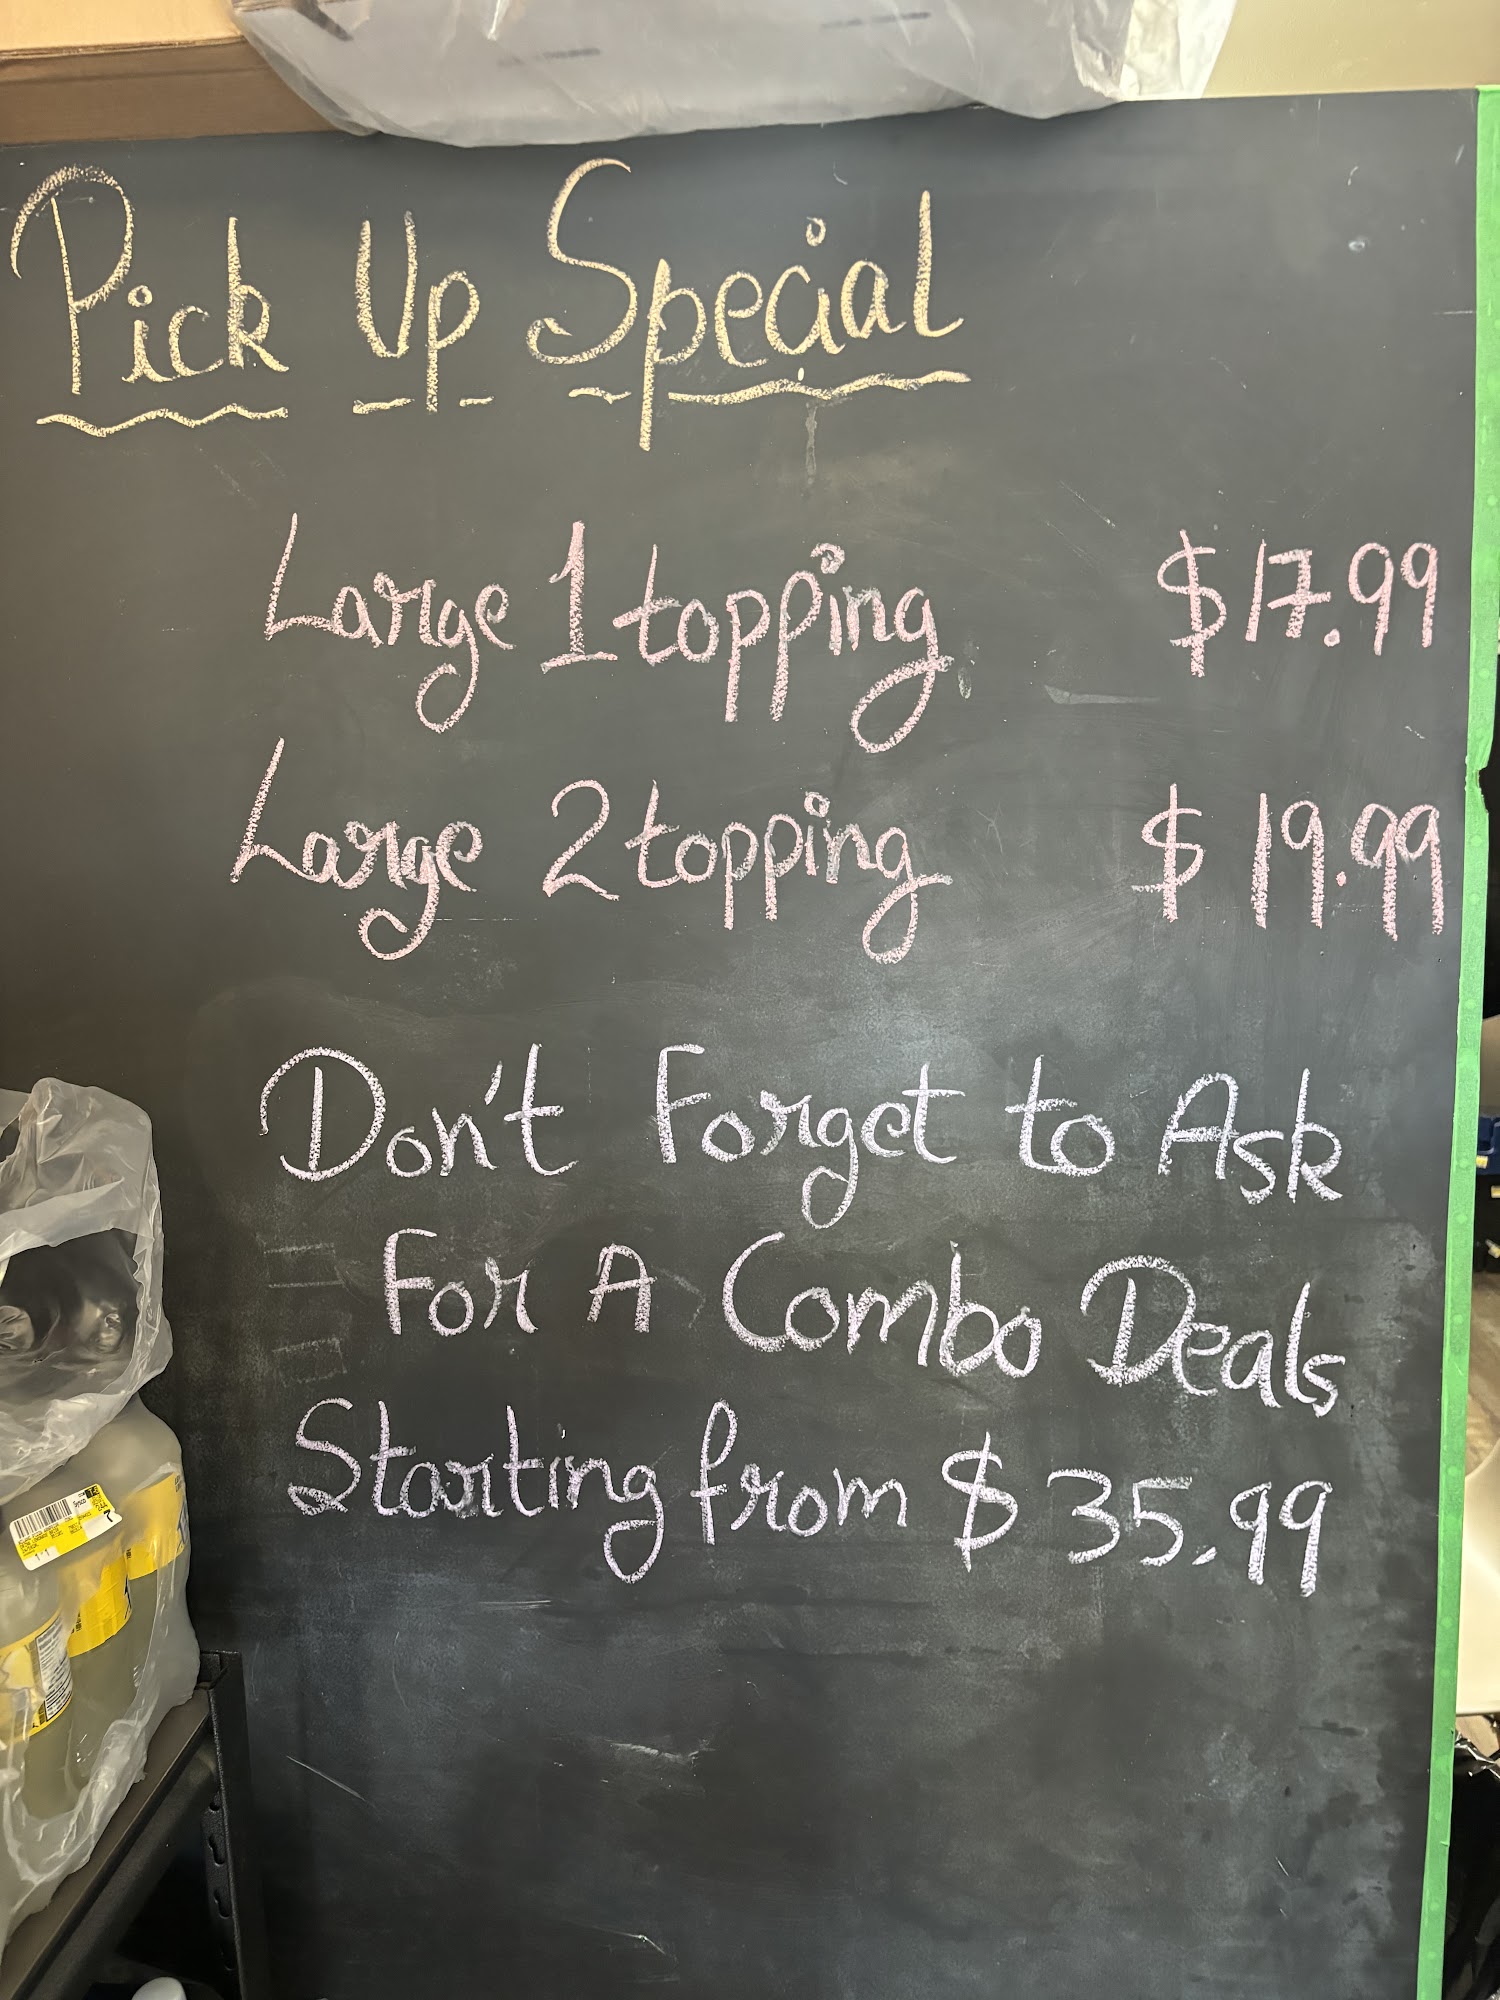 Pick Up Special
Large 1 topping $17.99
Large 2 topping $19.99
Don't Forget to Ask
For A Combo Deals
Starting from $35.99
Sysco
7